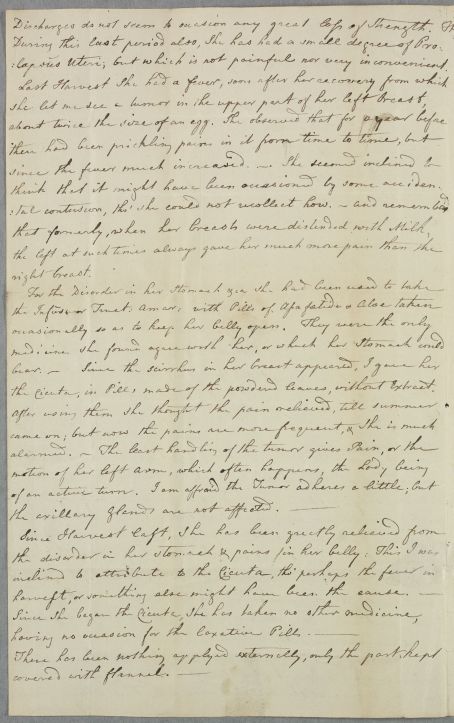 Discharges do not seem to occasion any great Loss of Strength.
During this last period also, She has had a small degree of Pro:
:lapsus Uteri; but which is not painful nor very inconvenient.
Last Harvest She had a fever, soon after her recovery from which
she let me see a tumor in the upper part of her left breast,
about twice the size of an egg. She observed that for a year before
there had been prickling pains in it from time to time, but
since the fever much increased. – She seemed inclined to
think that it might have been occasioned by some acciden:
:tal contusion, tho' she could not recollect how. – and remembered
that formerly, when her breasts were distended with Milk,
the left at such times always gave her much more pain than the
right breast.
For the Disorder in her Stomach &ca She had been used to take
the Infusion or Tinct: Amar: with Pills of Asafatida & Aloe taken
occasionally so as to keep her belly open. They were the only
medicine She found agree with her, or which her Stomach could
bear. – Since the scirrhus in her breast appeared, I gave her
the Cicuta, in Pills made of the powder'd leaves, without Extract.
After using them She thought the pain relieved, till summer
came on; but now the pains are more frequent, & She is much
alarmed. – The least handling of the tumor gives Pain, or the
motion of her left Arm, which often happens, the Lady being
of an active turn. I am affraid the Tumor adheres a little, but
the axillary Glands are not affected. –
Since Harvest last, She has been greatly relieved from
the disorder in her Stomach & pains in her belly: This I was
inclined to attribute to the Cicuta, tho' perhaps the fever in
harvest, or something else might have been the cause. –
Since She began the Cicuta, She has taken no other medicine,
having no occasion for the laxative Pills. –
There has been nothing applyed externally, only the part kept
covered with flannel. –